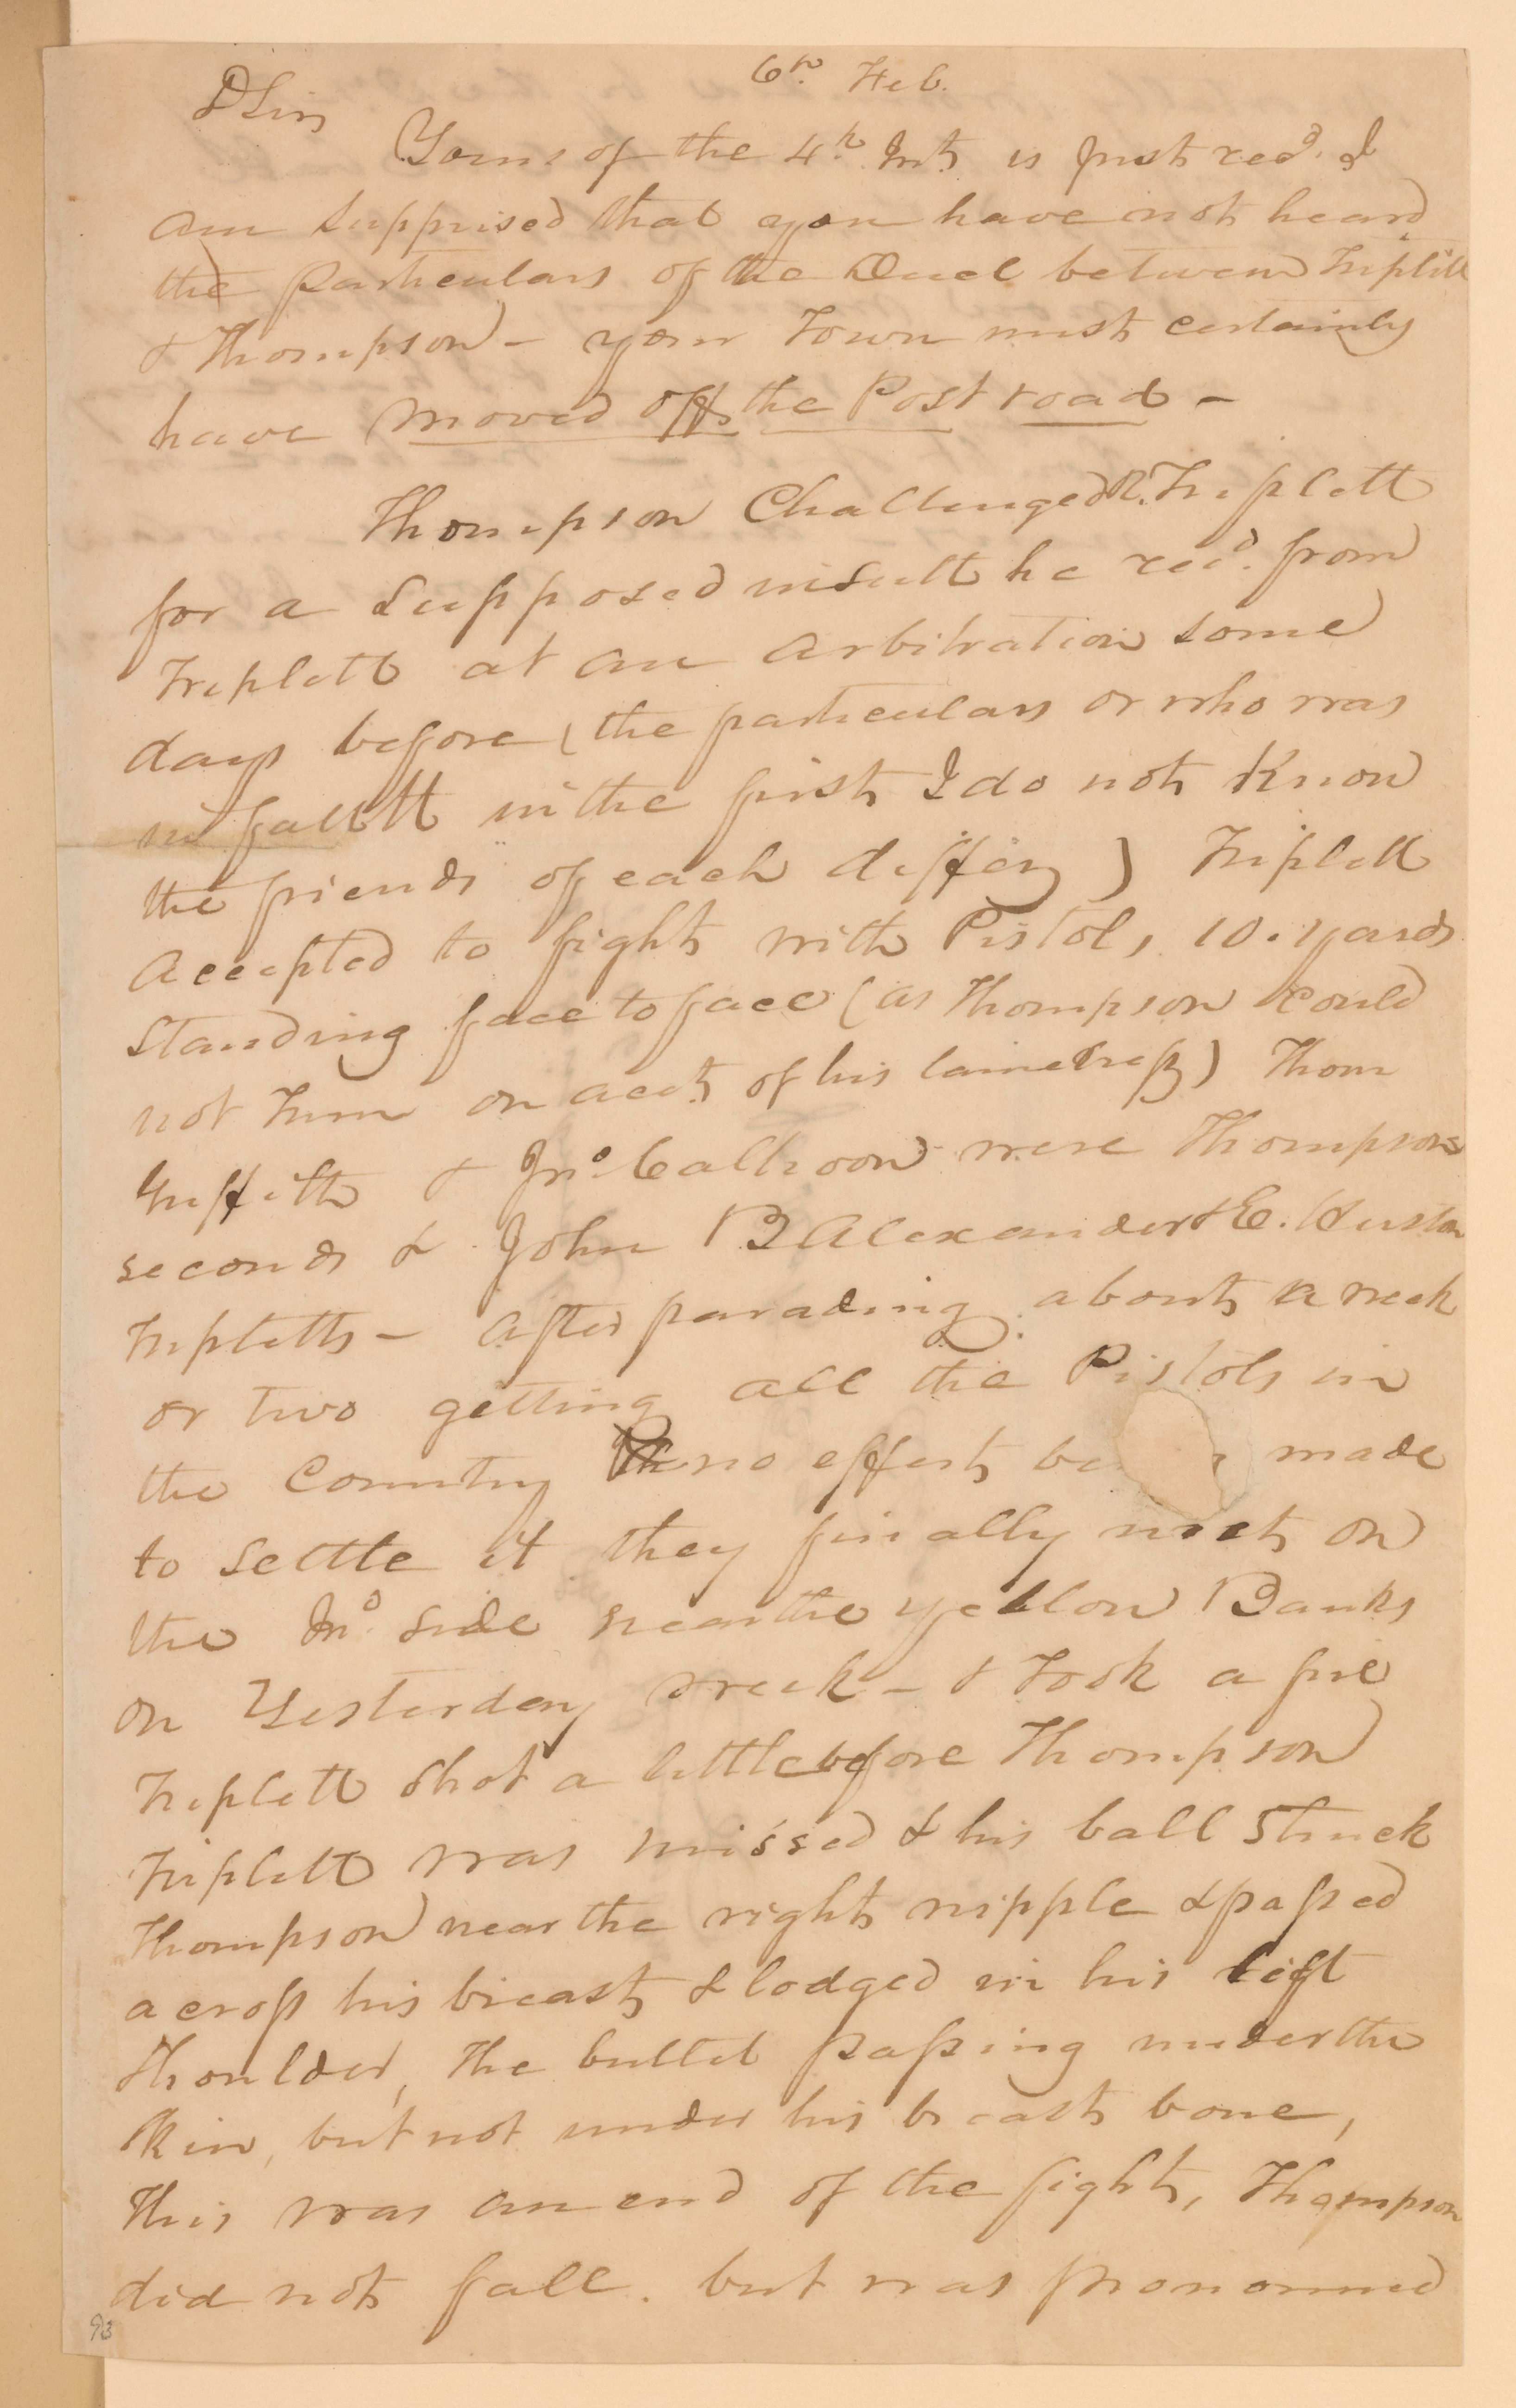 6h Feb.
D Sir
Yours of the 4h Inst is just recd. I
am supprised that you have not heard
the particulars of the Duel between Triplett
& Thompson – your Town must certainly
have moved off the Post road –
Thompson Challenged R. Triplett
for a supposed insult he recd. from
Triplett at an arbitration some
days before (the particulars or who was
in fault in the first I do not Know
the friends of each differ) Triplett
accepted to fight with Pistols, 10. yards
standing face to face (as Thompson could
not turn on acct. of his lameness) Thom
Griffith & Jno. Calhoon were Thompsons
seconds & John B Alexander & E. Huston
Tripletts – after parading about a week
or two getting all the Pistols in
the Country no effort be made
to settle it they finally met on
the Ind. side near the yellow Banks
on Yesterday week – & took a fire
Triplett shot a little before Thompson
Triplett was missed & his ball struck
Thompson near the right nipple & passed
across his breast & lodged in his left
shoulder, the bullet passing under the
skin, but not under his breast bone,
This was an end of the fight, Thompson
did not fall. but was pronounced
93